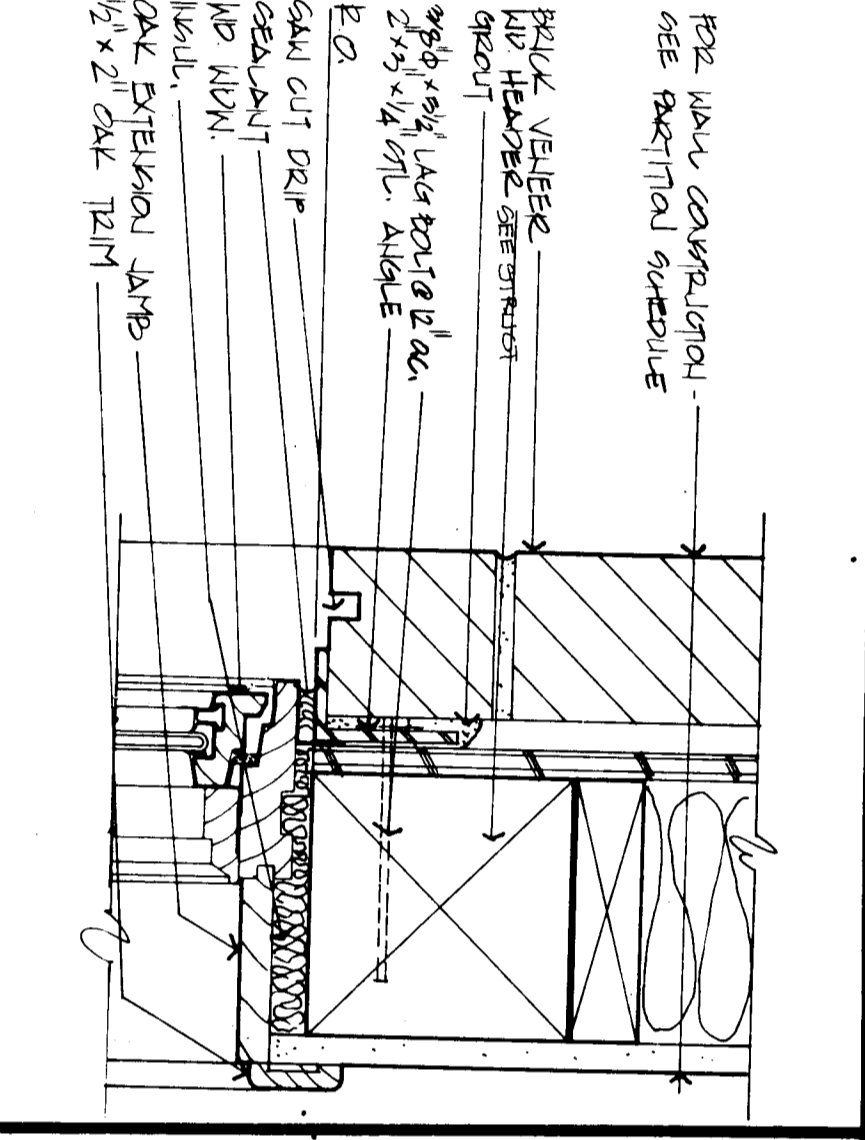 FOR WALL CONSTRUCTION
SEE PARTITION SCHEDULE
BRICK VENEER
WD. HEADER SEE STRUCT
GROUT
3/8"Φ x 5 1/2" LAG BOLT @ 12" OC.
2" x 3" x 1/4 STL. ANGLE
R.O.
SAW CUT DRIP
SEALANT
WD. WDW.
INSUL.
OAK EXTENSION JAMB
1/2" x 2" OAK TRIM